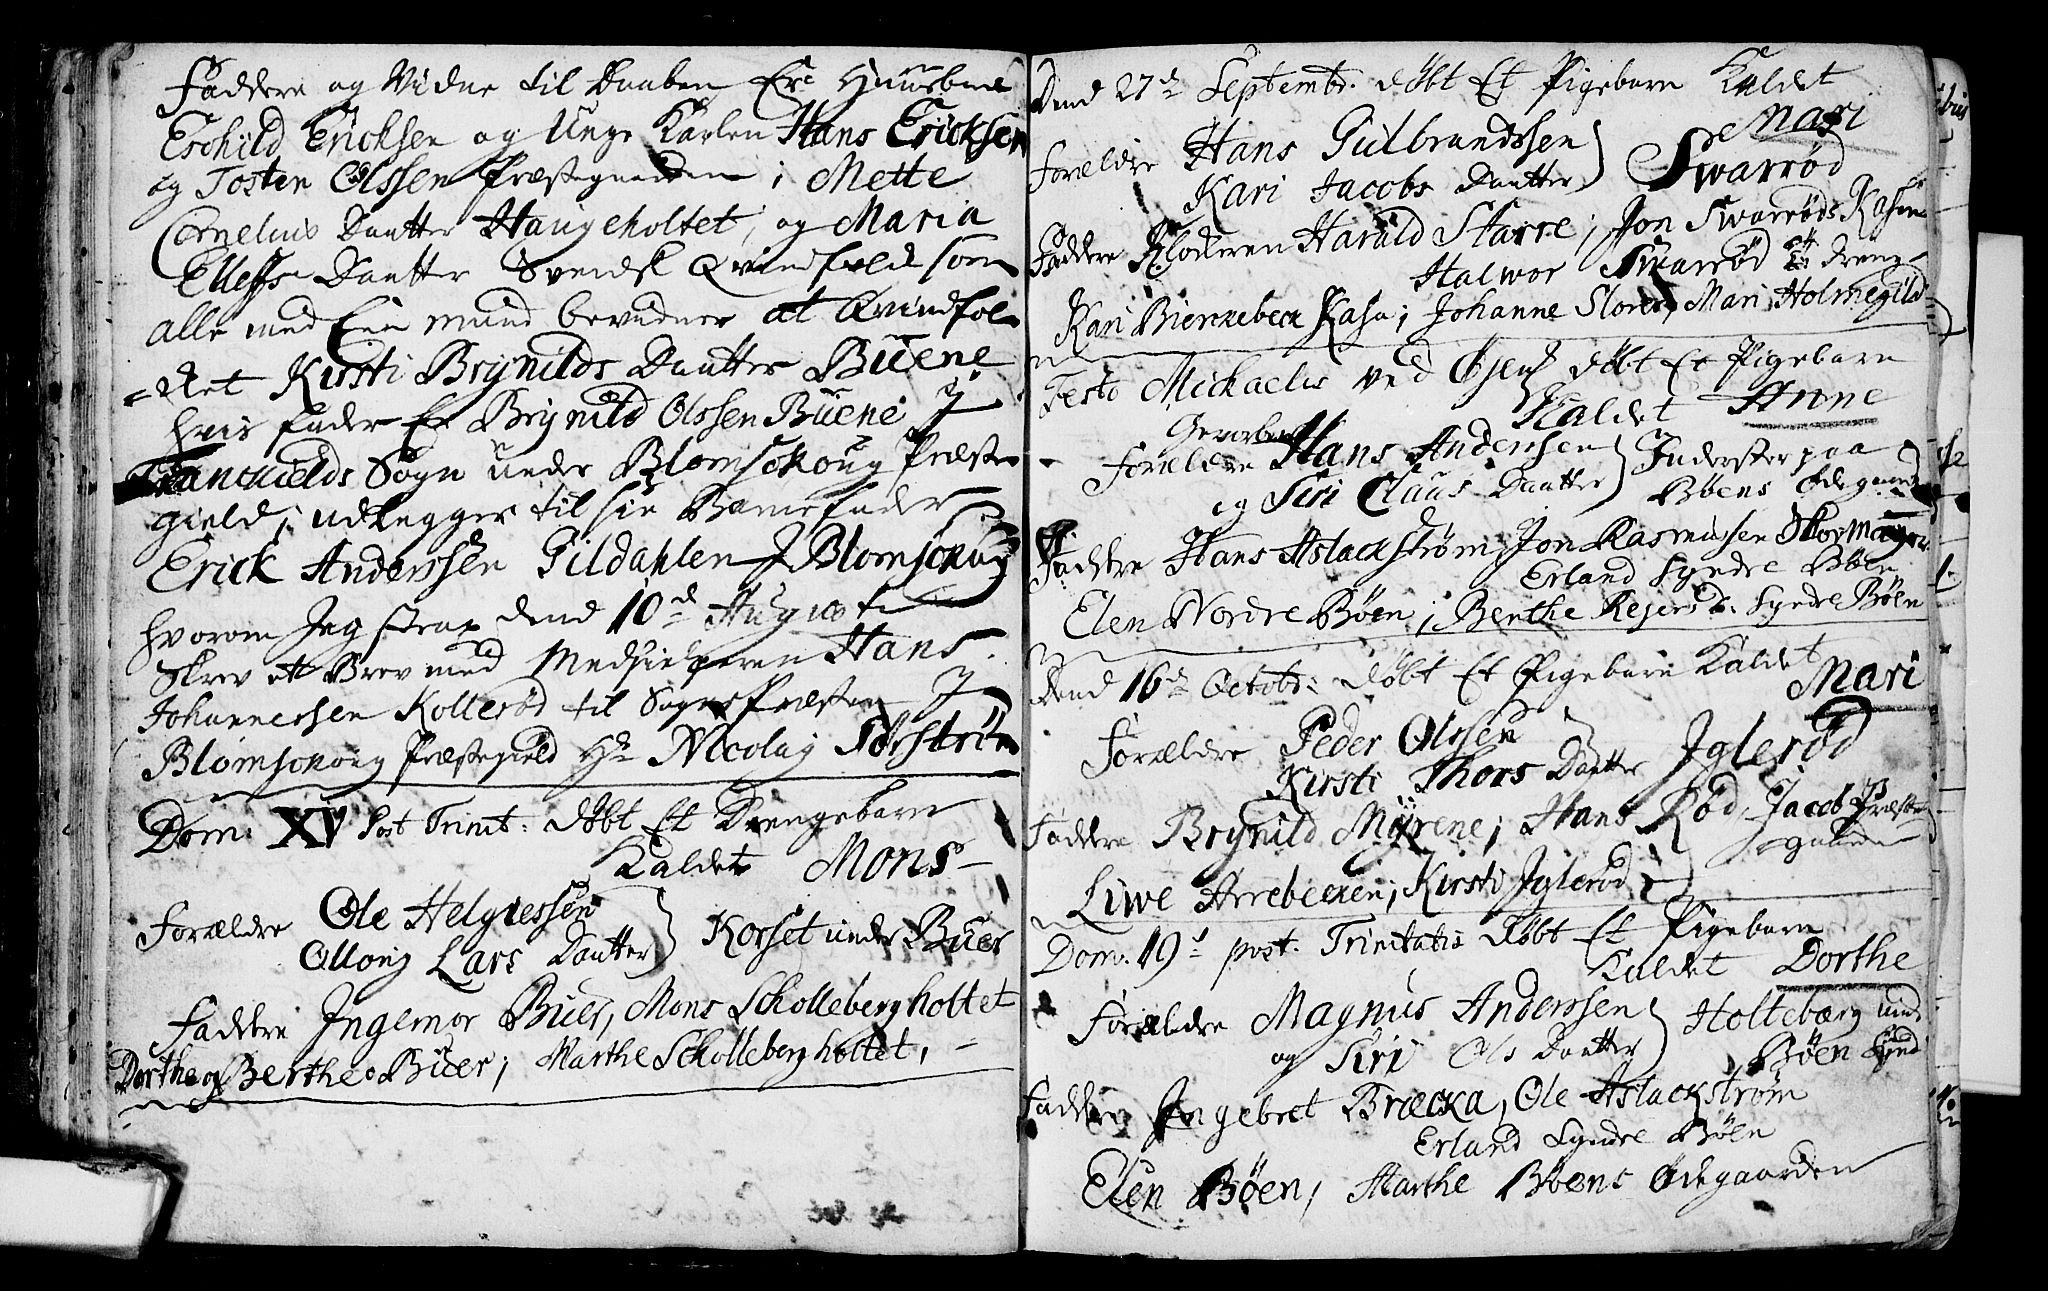 Faddere og Vidne til Daaben Ere Huusbond
Eschild Ericksen og Unge Karlen Hans Ericksen
og Tosten Olssen Præstegaarden; Mette
Cornelius Daatter Haugeholtet, og Maria
Ellefs Daatter Svendsk Qvindfolk som
alle med Een mund bevidner at Qvindfol-
=ket Kirsti Brynilds Daatter Buene
hvis fader Er Brynild Olssen Buene J
Tanckields Sogn under Blomskoug Præste
gield, udlegger til sin Barnefader
Erick Anderssen Gildahlen J Blomskoug
hvorom Jeg strax dend 10d Augusti
Skrev ett Brev med Medhielperen Hans
Johannessen Kollerød til Sogne Præsten J
Blomskoug Præstegield Hr Nicolay Torström
Dom: XV Post Trinit: døbt Et Drengebarn
Kaldet Mons
Forældre Ole Helgiessen
Ollong Lars Daatter Korset under Buer
Faddere Ingemor Buer, Mons Scholleberg holtet
Dorthe og Berthe Buer; Marthe Scholleberg holtet,
Dend 27d Septembr. døbt Et Pigebarn Kaldet
Mari
Forældre Hans Gulbrandssen
Kari Jacobs Daatter Swarrød
Faddere Harald Starre; Jon Swarrøds Kasen
Halwor Swarrød Et Dreng
Kari Bierckebeck Kasa; Johanne Slorer, Mari Holmegild
Festo Michaelis ved Øjens døbt Et Pigebarn
Kaldet Anne
Gevorbne
Forældre Hans Anderssen Inderster paa
og Siri Claus Daatter Bøens Ødegaard
Faddere Hans Aslackstrøm, Jon Rasmussen Skoemager
Erland Syndre Bøen
Elen Nordre Bøen; Berthe Rejers d. Syndre Bøen
Dend 16d Octobr: døbt Et Pigebarn Kaldet
Mari
Forældre Peder Olssen
Kirsti Thors Daatter Iglerød
Faddere Brynild Myrene; Hans Rød, Jacob Præste
gaarden
Liwe Arrebecken; Kirsti Iglerød
Dom. 19d post. Trinitatis døbt Et Pigebarn
Kaldet Dorthe
Forældre Magnus Anderssen Holtebæg und
og Siri Ols Daatter Bøen Synd
Faddere Ingebret Bræcka, Ole Aslackstrøm
Erland Syndre Bøen
Elen Bøen, Marthe Bøens Ødegaarden